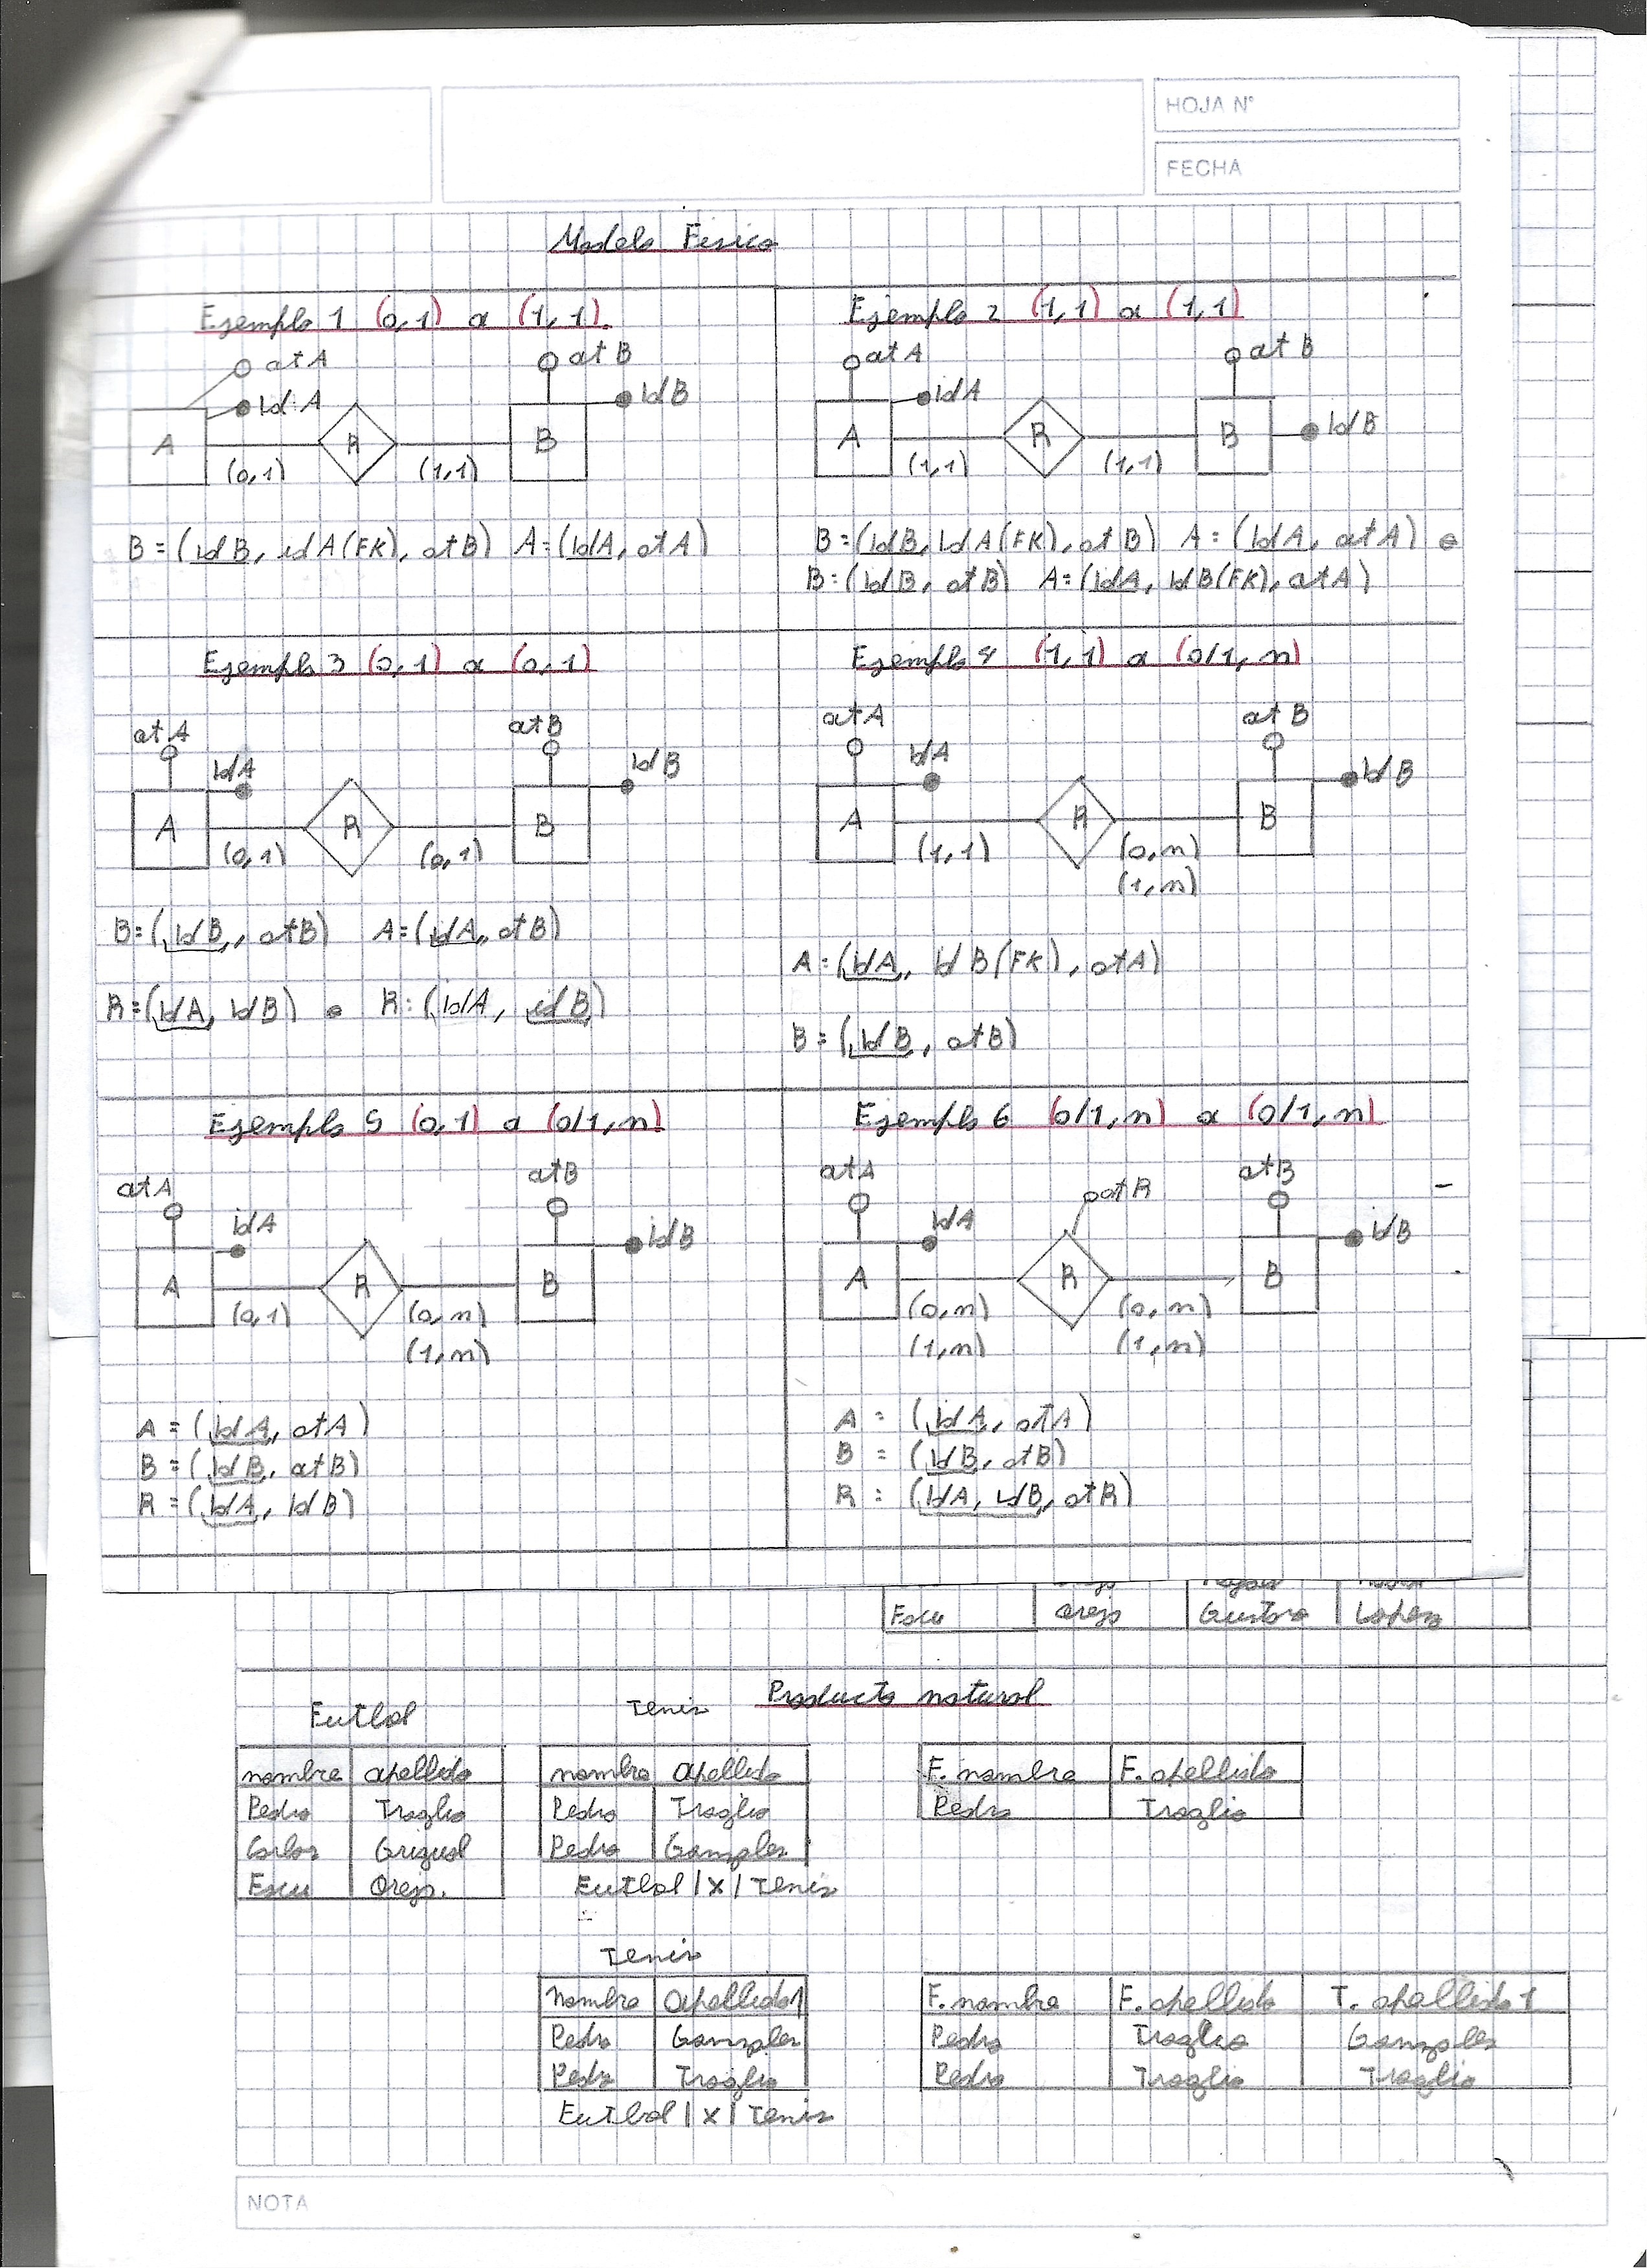 HOJA N°
FECHA
Modelo Fisico
Ejemplo 1 (0,1) a (1,1)
at A
Id A
A
(0,1)
R
(1,1)
at B
Id B
B
B = (Id B, id A (FK), at B) A = (Id A, at A)
Ejemplo 2 (1,1) a (1,1)
at A
Id A
A
(1,1)
R
(1,1)
at B
Id B
B
B = (Id B, Id A (FK), at B) A = (Id A, at A) o
B = (Id B, at B) A = (Id A, Id B (FK), at A)
Ejemplo 3 (0,1) a (0,1)
at A
Id A
A
(0,1)
R
(0,1)
at B
Id B
B
B = (Id B, at B) A = (Id A, at B)
R = (Id A, Id B) o R : (Id A, id B)
Ejemplo 4 (1,1) a (0/1, n)
at A
Id A
A
(1,1)
R
(0,n)
(1,n)
at B
Id B
B
A = (Id A, Id B (FK), at A)
B = (Id B, at B)
Ejemplo 5 (0,1) a (0/1, n)
at A
id A
A
(0,1)
R
(0,n)
(1,n)
at B
Id B
B
A = (Id A, at A)
B = (Id B, at B)
R = (Id A, Id B)
Ejemplo 6 (0/1, n) a (0/1, n)
at A
Id A
A
(0,n)
(1,n)
at R
R
(0,n)
(1,n)
at B
Id B
B
A = (Id A, at A)
B = (Id B, at B)
R = (Id A, id B, at R)
Escu Orejo Gustavo Lopez
Producto natural
Futbol
nombre apellido
Pedro Traglio
Carlos Grigual
Escu Orejo.
Tenis
nombre apellido
Pedro Traglio
Pedro Gonzales
Futbol |X| Tenis
F. nombre F. apellido
Pedro Traglio
Tenis
Nombre apellido1
Pedro Gonzales
Pedro Traglio
Futbol |X| Tenis
F. nombre F. apellido T. apellido1
Pedro Traglio Gonzales
Pedro Traglio Traglio
NOTA